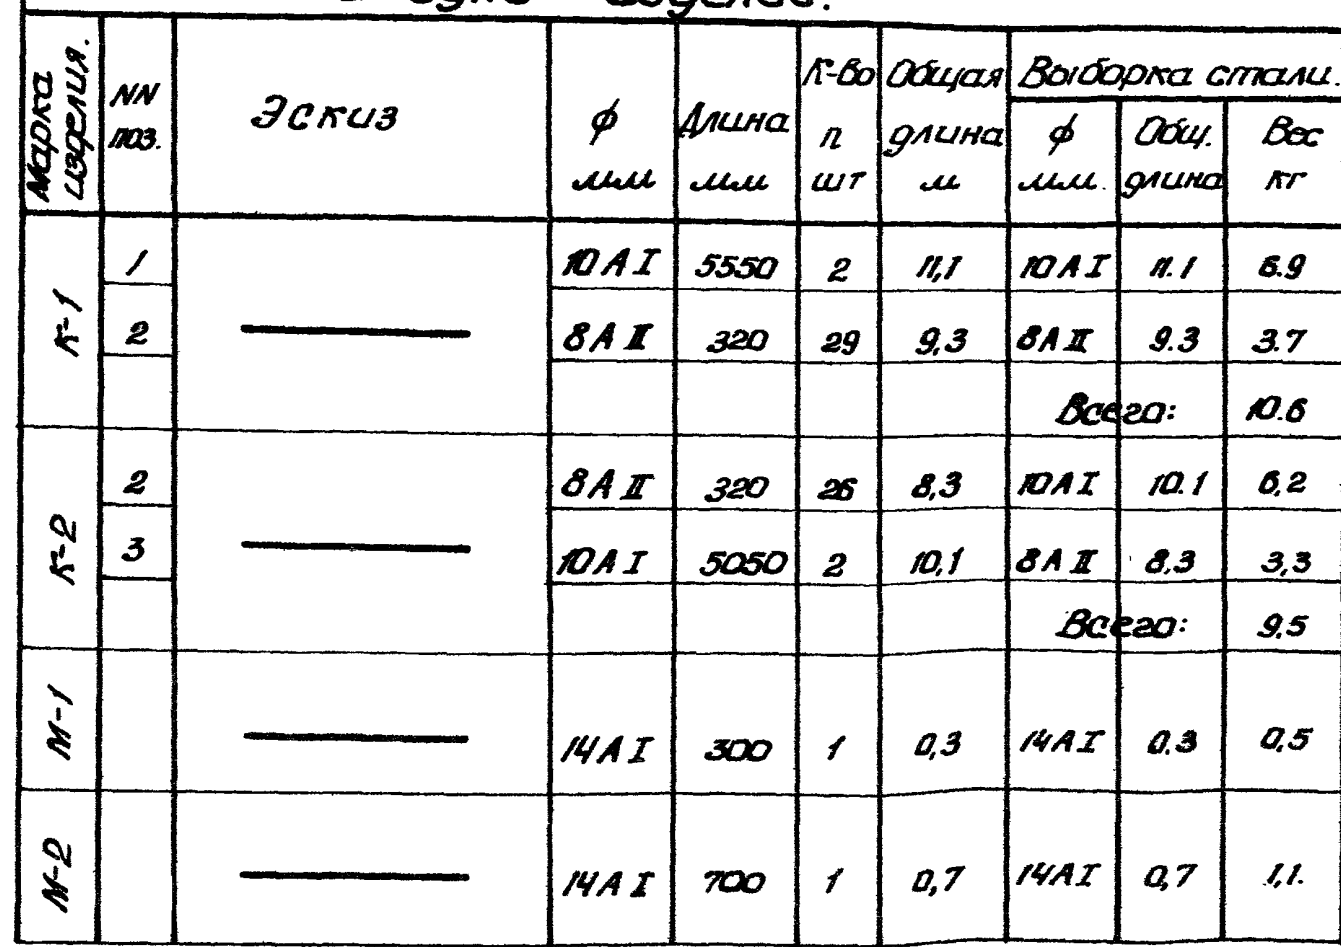 на одно изделие.
Марка изделия. NN поз. Эскиз ϕ мм Длина мм К-во п шт Общая длина м Выборка стали.
ϕ мм. Общ. длина Вес кг
К-1 1 10 А I 5550 2 11,1 10 А I 11.1 6.9
2 8 А II 320 29 9,3 8 А II 9.3 3.7
Всего: 10.6
К-2 2 8 А II 320 26 8,3 10 А I 10.1 6,2
3 10 А I 5050 2 10,1 8 А II 8.3 3,3
Всего: 9.5
М-1 14 А I 300 1 0,3 14 А I 0.3 0,5
М-2 14 А I 700 1 0,7 14 А I 0,7 1,1.